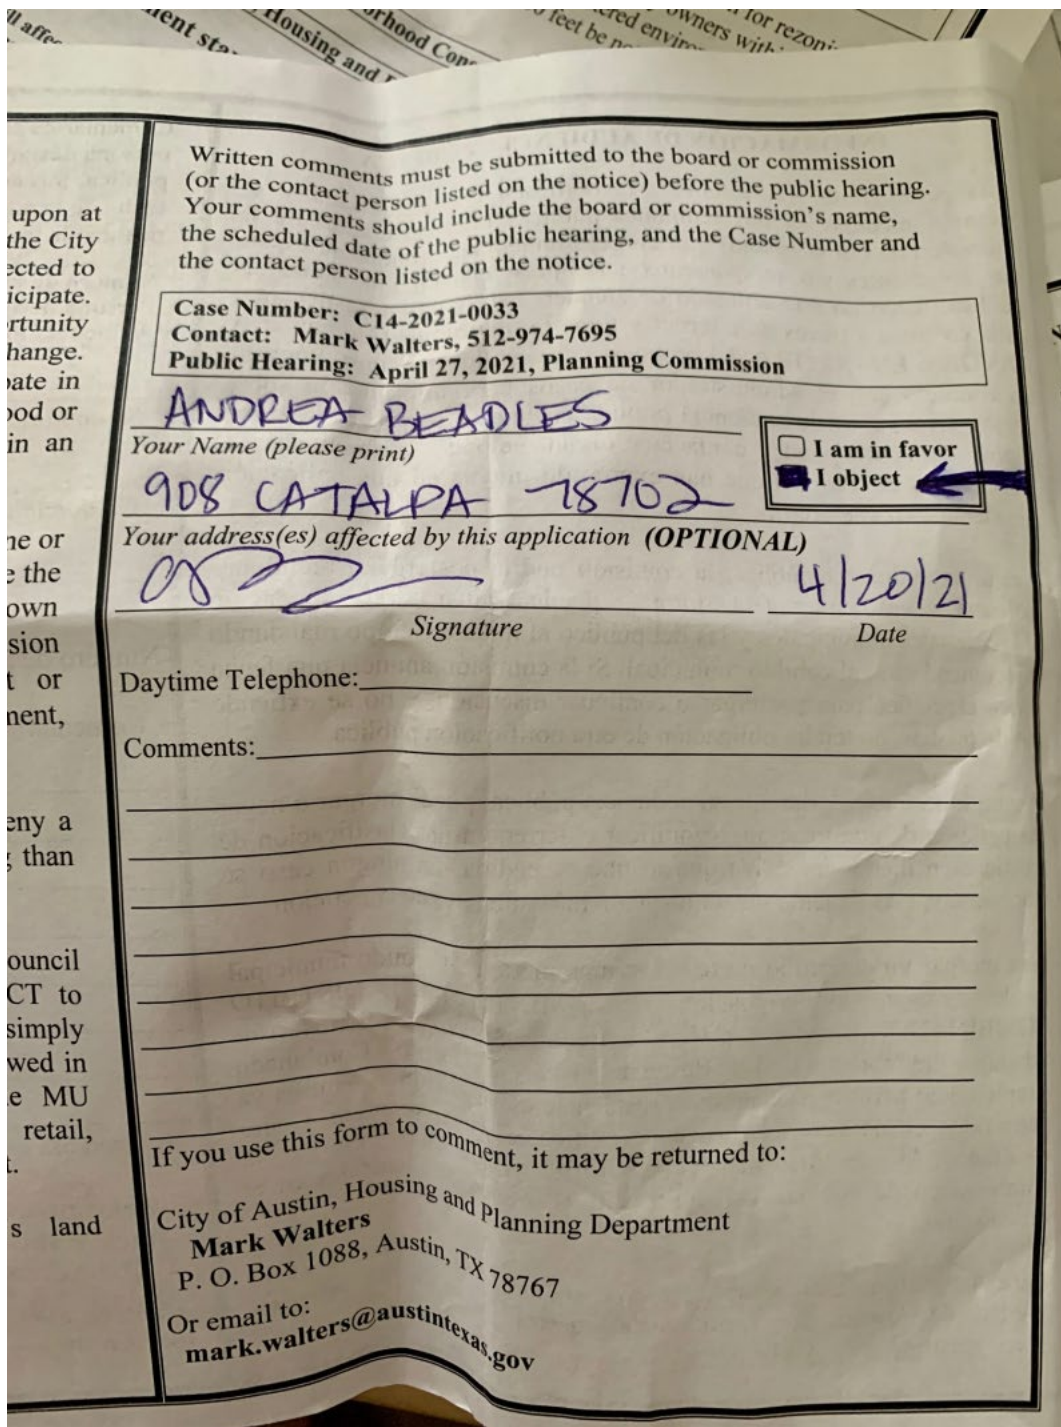 ll affec
ent sta
, Housing and
orhood Con
feet be no
ered enviro
owners with
for rezoni
upon at
the City
ected to
icipate.
rtunity
hange.
pate in
ood or
in an
ne or
e the
own
sion
t or
nent,
eny a
g than
ouncil
CT to
simply
wed in
e MU
retail,
t.
s land
Written comments must be submitted to the board or commission
(or the contact person listed on the notice) before the public hearing.
Your comments should include the board or commission's name,
the scheduled date of the public hearing, and the Case Number and
the contact person listed on the notice.
Case Number: C14-2021-0033
Contact: Mark Walters, 512-974-7695
Public Hearing: April 27, 2021, Planning Commission
ANDREA BEADLES
Your Name (please print)
I am in favor
I object
908 CATALPA 78702
Your address(es) affected by this application (OPTIONAL)
4/20/21
Signature Date
Daytime Telephone:
Comments:
If you use this form to comment, it may be returned to:
City of Austin, Housing and Planning Department
Mark Walters
P. O. Box 1088, Austin, TX 78767
Or email to:
mark.walters@austintexas.gov